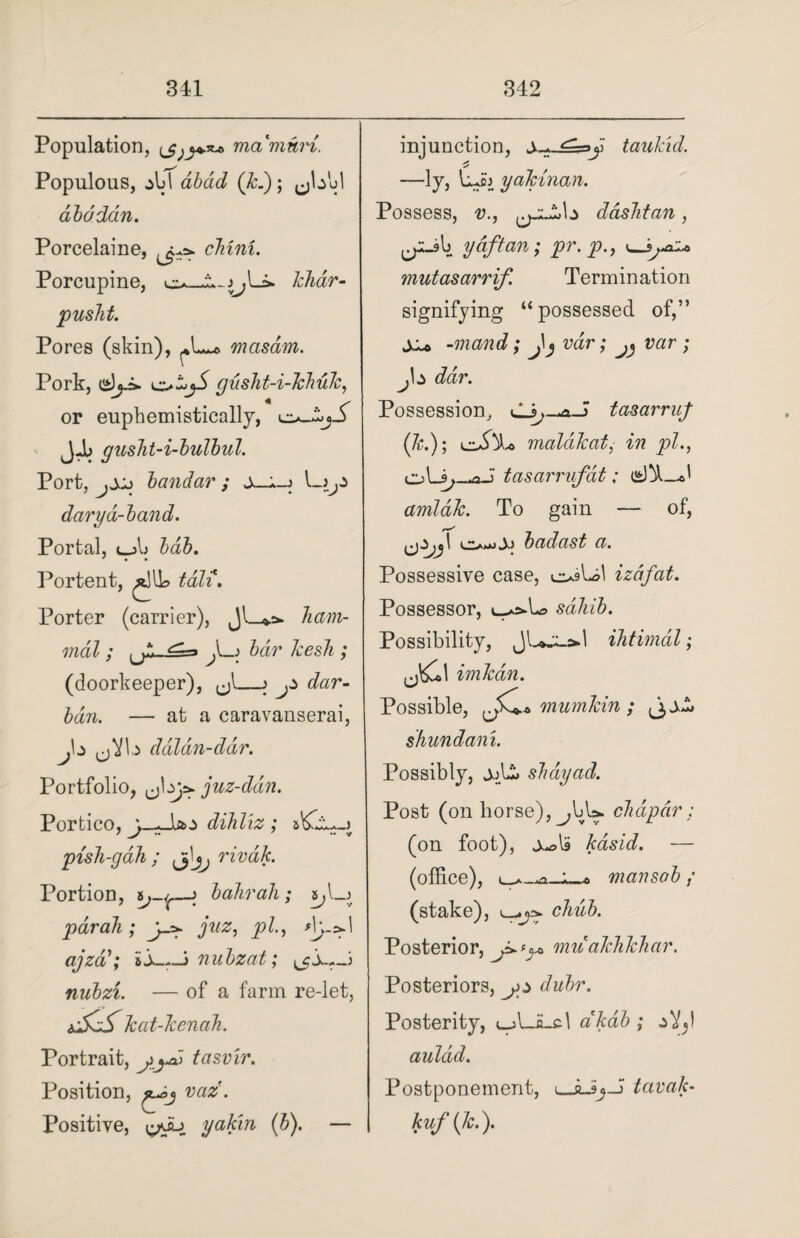 341
342
Population, معموری ma'mūrī.
Populous, آباد ābād (k.); آبادان
ābādān.
Porcelaine, چینی chīnī.
Porcupine, خارپشت khār-
pusht.
Pores (skin), مسام masām.
Pork, گوشت خوک gūsht-i-khūk,
or euphemistically, گوشت
بلبل gusht-i-bulbul.
Port, بندر bandar; دریا بند
daryā-band.
Portal, باب bāb.
Portent, طالع tāli'.
Porter (carrier), حمال ham-
māl; بار کش bār kesh;
(doorkeeper), در بان dar-
bān. — at a caravanserai,
دالان دار dālān-dār.
Portfolio, جزدان juz-dān.
Portico, دهلیز dihlīz; پیشگاه
pīsh-gāh; رواق rivāk.
Portion, بهره bahrah; پاره
pārah; جز juz, pl., اجزاء
ajzā'; نبذة nubzat; نبذی
nubzī. — of a farm re-let,
کتکنه kat-kenah.
Portrait, تصویر tasvīr.
Position, وضع vaz'.
Positive, یقین yakīn (b). —
injunction, توکید taukīd.
—ly, یقیناً yakīnan.
Possess, v., داشتن dāshtan,
یافتن yāftan; pr. p., متصرف
mutasarrif. Termination
signifying “possessed of,”
مند -mand; وار vār; ور var;
دار dār.
Possession, تصرف tasarruf
(k.); ملاکت malākat, in pl.,
تصرفات tasarrufāt; املاک
amlāk. To gain — of,
بدست آوردن badast a.
Possessive case, اضافت izāfat.
Possessor, صاحب sāhib.
Possibility, احتمال ihtimāl;
امکان imkān.
Possible, ممکن mumkin; شدنی
shundanī.
Possibly, شاید shāyad.
Post (on horse), چاپار chāpār;
(on foot), قاصد kāsid. —
(office), منصب mansab;
(stake), چوب chūb.
Posterior, مؤخر mu'akhkhar.
Posteriors, دبر dubr.
Posterity, اعقاب a'kāb; اولاد
aulād.
Postponement, توقف tavak-
kuf (k.).